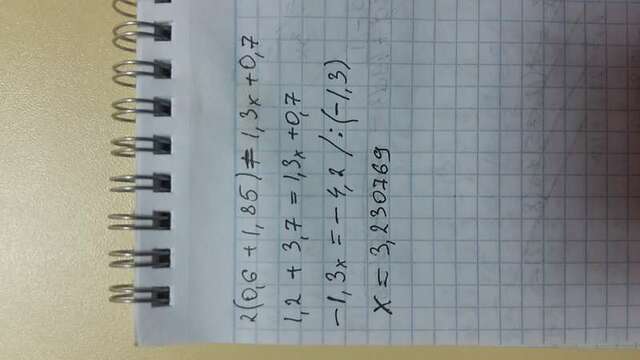 2(0,6 + 1,85) = 1,3x + 0,7
1,2 + 3,7 = 1,3x + 0,7
-1,3x = -4,2 /:(-1,3)
x = 3,230769